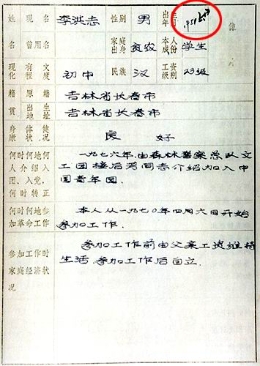 姓名 李洪志 性别 男 出生年月
曾用名 家庭出身 贫农 本人成份 学生
现有文化程度 初中 民族 汉 工资级别 23级
籍贯 原籍 吉林省长春市
出生地址 吉林省长春市
身体健康状况 良好
何时何地何人介绍入团、入党，何时转正
一九七六年，由森林警察总队文
工团 同志介绍加入中
国青年团。
何时何地参加革命工作
本人从一九七〇年四月六日开始
参加工作。
参加工作时家庭经济状况
参加工作前由父亲工资维持
生活，参加工作后自立。